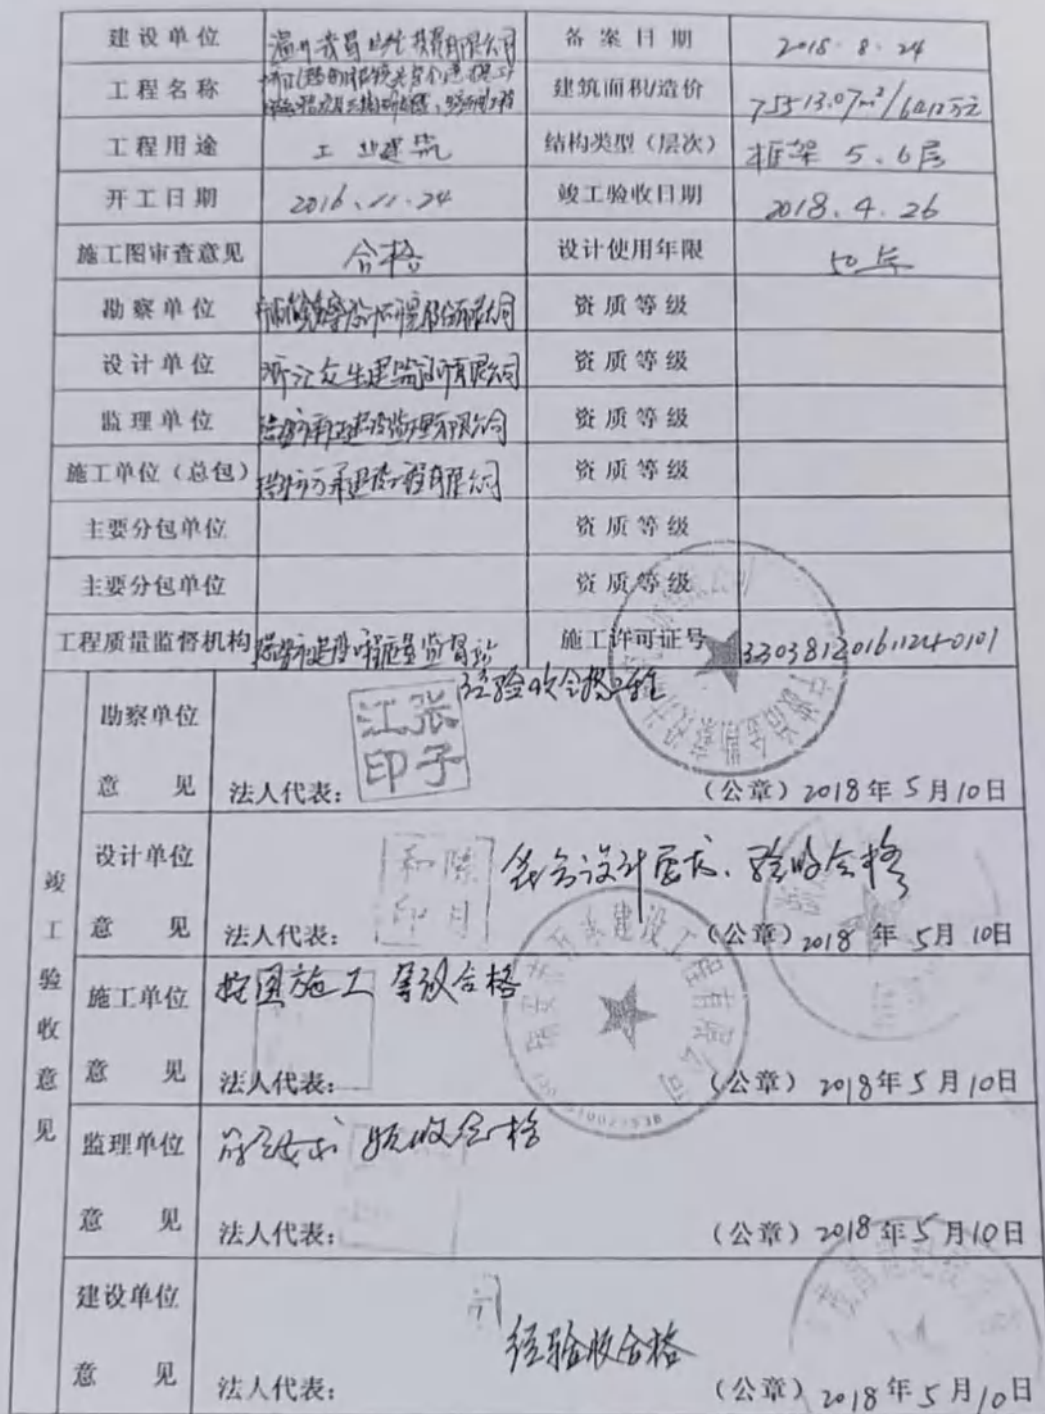 建设单位 备案日期 2018.8.24
工程名称 建筑面积/造价 75513.07m²/6412万元
工程用途 工业建筑 结构类型（层次） 框架 5、6层
开工日期 2016.11.24 竣工验收日期 2018.4.26
施工图审查意见 合格 设计使用年限 50年
勘察单位 资质等级
设计单位 浙江众生建筑设计有限公司 资质等级
监理单位 资质等级
施工单位（总包） 瑞安市万承建设工程有限公司 资质等级
主要分包单位 资质等级
主要分包单位 资质等级
工程质量监督机构 瑞安市建设工程质量监督站 施工许可证号 330381201611240101
竣工验收意见
勘察单位
意 见
经验收合格
张子江印
法人代表：
（公章）2018年5月10日
设计单位
意 见
符合设计要求、验收合格
陈月和印
法人代表：
（公章）2018年5月10日
施工单位
意 见
按图施工 等级合格
瑞安市万承建设工程有限公司
法人代表：
（公章）2018年5月10日
监理单位
意 见
验收合格
法人代表：
（公章）2018年5月10日
建设单位
意 见
经验收合格
法人代表：
（公章）2018年5月10日